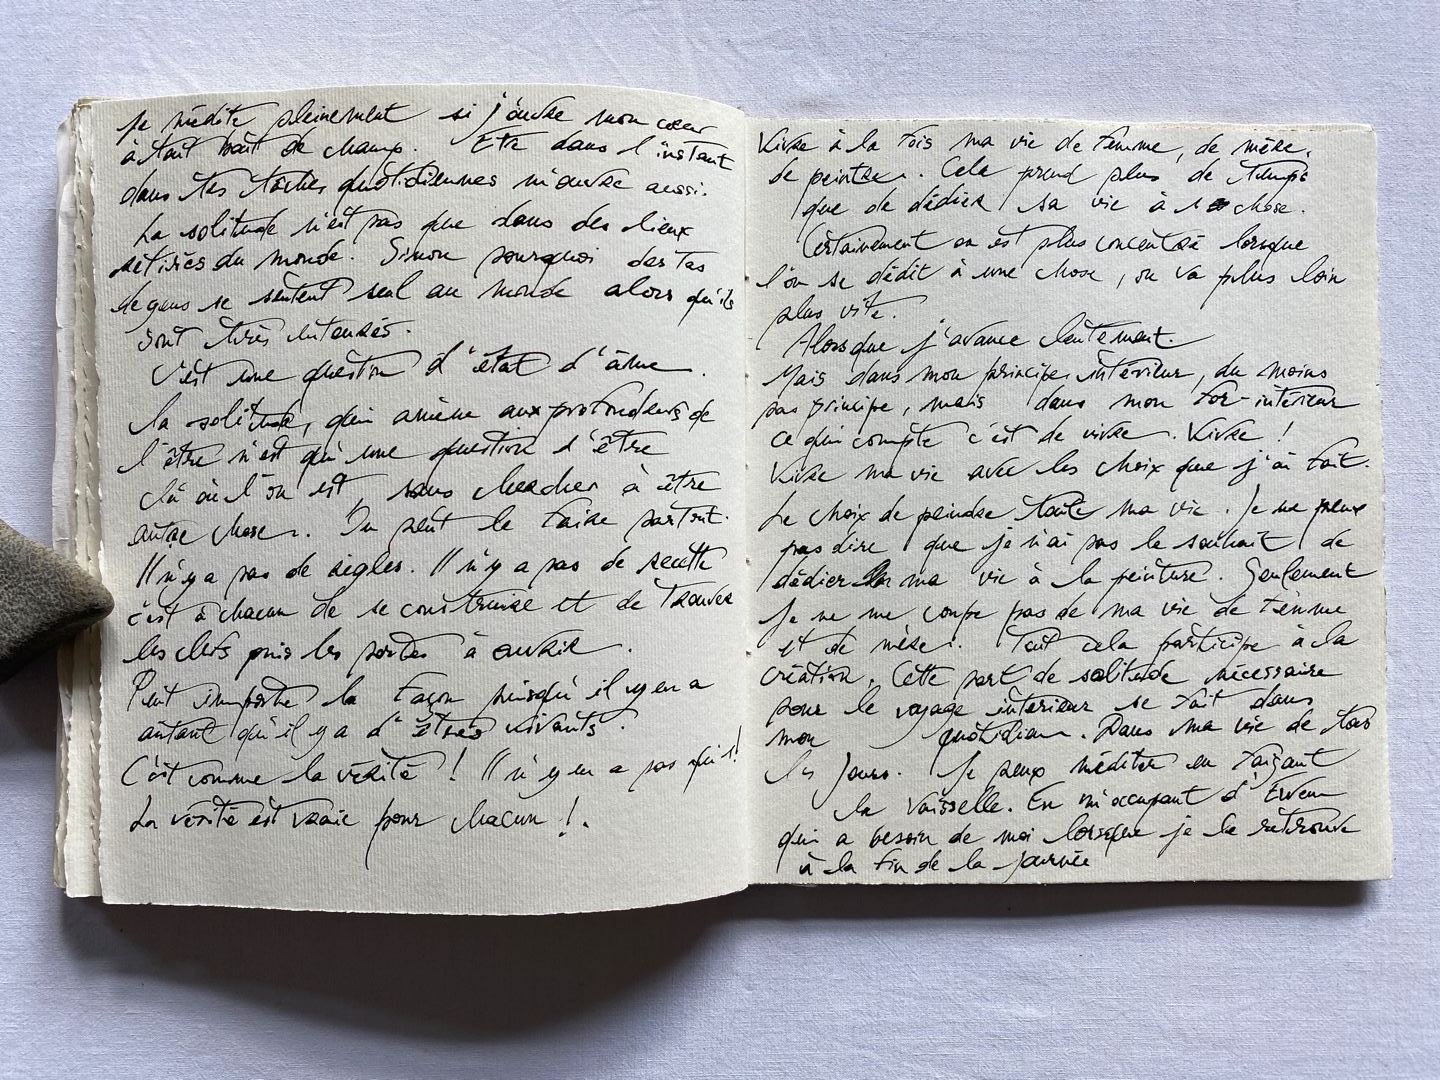 Je médite pleinement si j'ouvre mon cœur
à tout bout de champ. Etre dans l'instant
dans les tâches quotidiennes m'ouvre aussi.
La solitude n'est pas que dans des lieux
retirés du monde. Sinon pourquoi des tas
de gens se sentent seul au monde alors qu'ils
sont très entourés.
C'est une question d'état d'âme.
La solitude, qui amène aux profondeurs de
l'être n'est qu'une question d'être
là où l'on est, sans chercher à être
autre chose. On peut le faire partout.
Il n'y a pas de règles. Il n'y a pas de recette
c'est à chacun de se construire et de trouver
les clefs puis les portes à ouvrir.
Peut importe la façon puisqu'il y en a
autant qu'il y a d'êtres vivants.
C'est comme la vérité ! Il n'y en a pas qu'1!
La vérité est vraie pour chacun !.
Vivre à la fois ma vie de femme, de mère,
de peintre. Cela prend plus de temps
que de dédier sa vie à 1 chose.
Certainement on est plus concentré lorsque
l'on se dédit à une chose, on va plus loin
plus vite.
Alors que j'avance lentement.
Mais dans mon principe intérieur, du moins
pas principe, mais dans mon for-intérieur
ce qui compte c'est de vivre. Vivre !
Vivre ma vie avec les choix que j'ai fait.
Le choix de peindre toute ma vie. Je ne peux
pas dire que je n'ai pas le souhait de
dédier ma vie à la peinture. Seulement
je ne me coupe pas de ma vie de femme
et de mère. Tout cela participe à la
création. Cette part de solitude nécessaire
pour le voyage intérieur se fait dans
mon quotidien. Dans ma vie de tous
les jours. Je peux méditer en faisant
la vaisselle. En m'occupant d'Erwen
qui a besoin de moi lorsque je le retrouve
à la fin de la journée